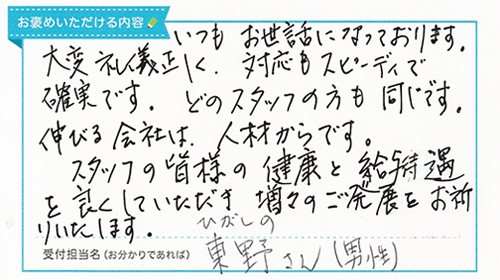 お褒めいただける内容
いつも お世話になっております。
大変 礼儀正しく、対応も スピーディで
確実です。どのスタッフの方も 同じです。
伸びる会社は、人材からです。
スタッフの皆様の健康と給与待遇
を良くしていただき 増々のご発展をお祈
りいたします。
ひがしの
受付担当名(お分かりであれば) 東野さん(男性)